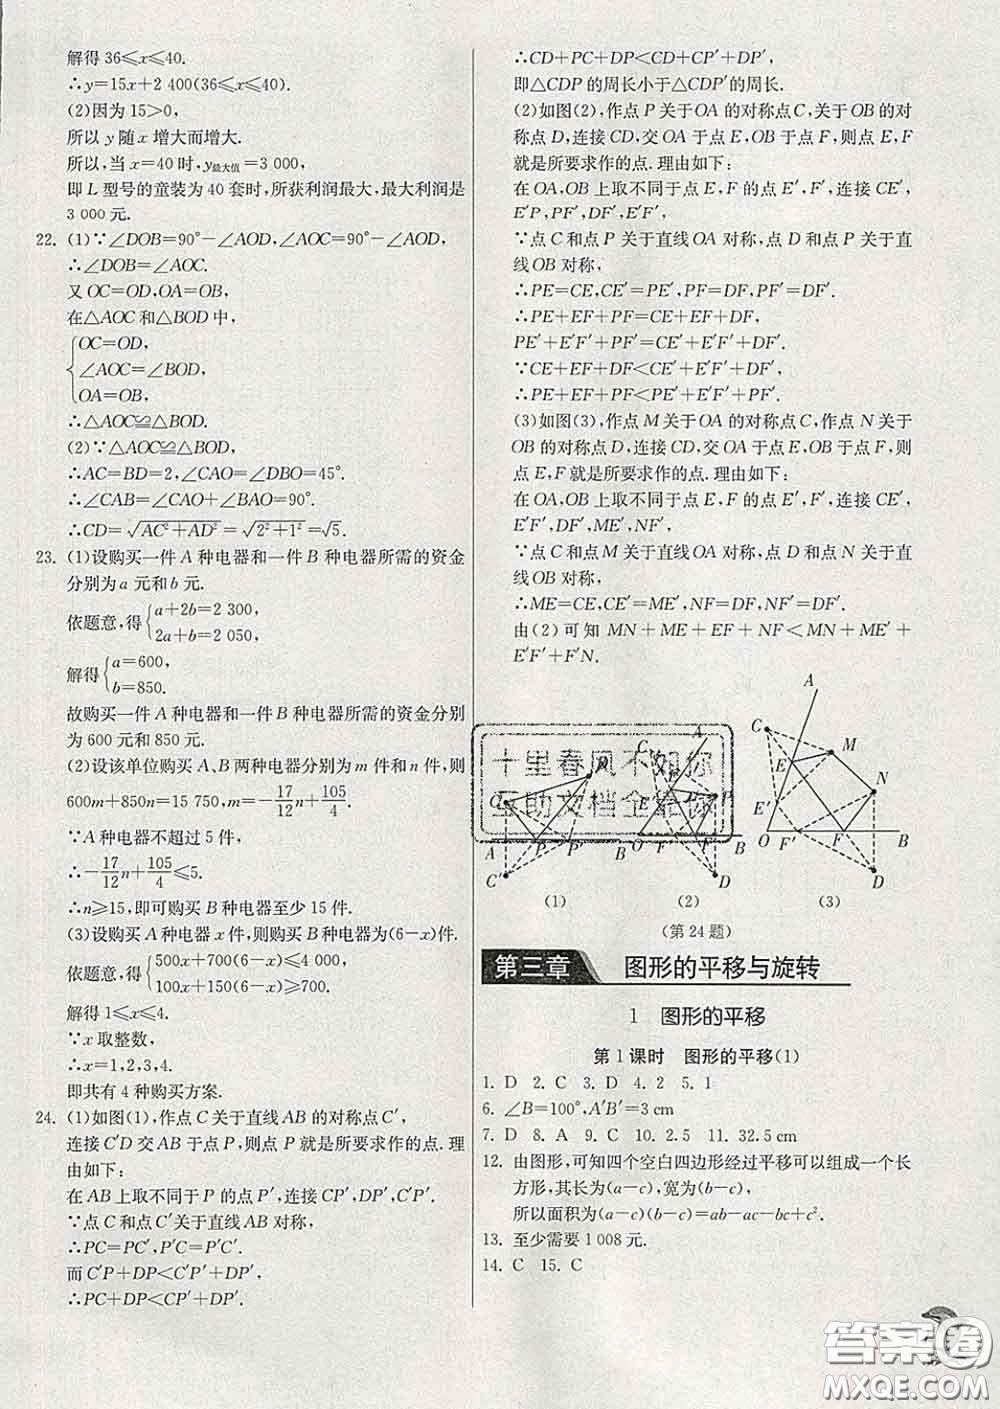 解得36≤x≤40.
∴y=15x+2 400(36≤x≤40).
(2)因为15>0,
所以 y 随 x 增大而增大.
所以,当 x=40 时,y最大值=3 000,
即 L 型号的童装为 40 套时,所获利润最大,最大利润是
3 000 元.
22. (1)∵∠DOB=90°-∠AOD,∠AOC=90°-∠AOD,
∴∠DOB=∠AOC.
又 OC=OD,OA=OB,
在△AOC 和△BOD 中,
OC=OD,
∠AOC=∠BOD,
OA=OB,
∴△AOC≌△BOD.
(2)∵△AOC≌△BOD,
∴AC=BD=2,∠CAO=∠DBO=45°.
∴∠CAB=∠CAO+∠BAO=90°.
∴CD=√(AC²+AD²)=√(2²+1²)=√5.
23. (1)设购买一件 A 种电器和一件 B 种电器所需的资金
分别为 a 元和 b 元.
依题意,得{a+2b=2 300,
2a+b=2 050,
解得{a=600,
b=850.
故购买一件 A 种电器和一件 B 种电器所需的资金分别
为 600 元和 850 元.
(2)设该单位购买 A、B 两种电器分别为 m 件和 n 件,则
600m+850n=15 750,m=-17/12 n+105/4.
∵A 种电器不超过 5 件,
∴-17/12 n+105/4≤5.
∴n≥15,即可购买 B 种电器至少 15 件.
(3)设购买 A 种电器 x 件,则购买 B 种电器为(6-x)件.
依题意,得{500x+700(6-x)≤4 000,
100x+150(6-x)≥700.
解得 1≤x≤4.
∵x 取整数,
∴x=1,2,3,4.
即共有 4 种购买方案.
24. (1)如图(1),作点 C 关于直线 AB 的对称点 C′,
连接 C′D 交 AB 于点 P,则点 P 就是所要求作的点.理
由如下:
在 AB 上取不同于 P 的点 P′,连接 CP′,DP′,C′P′.
∵点 C 和点 C′关于直线 AB 对称,
∴PC=PC′,P′C=P′C′.
而 C′P+DP<C′P′+DP′,
∴PC+DP<CP′+DP′.
∴CD+PC+DP<CD+CP′+DP′,
即△CDP 的周长小于△CDP′的周长.
(2)如图(2),作点 P 关于OA 的对称点C,关于 OB 的对
称点 D,连接 CD,交 OA 于点 E,OB 于点 F,则点 E,F
就是所要求作的点.理由如下:
在 OA,OB 上取不同于点 E,F 的点 E′,F′,连接 CE′,
E′P,PF′,DF′,E′F′,
∵点 C 和点 P 关于直线 OA 对称,点 D 和点 P 关于直
线 OB 对称,
∴PE=CE,CE′=PE′,PF=DF,PF′=DF′.
∴PE+EF+PF=CE+EF+DF,
PE′+E′F′+PF′=CE′+E′F′+DF′.
∵CE+EF+DF<CE′+E′F′+DF′,
∴PE+EF+PF<PE′+E′F′+PF′.
(3)如图(3),作点 M 关于 OA 的对称点 C,作点 N 关于
OB 的对称点 D,连接 CD,交 OA 于点 E,OB 于点 F,则
点 E,F 就是所要求作的点.理由如下:
在 OA,OB 上取不同于点 E,F 的点 E′,F′,连接 CE′,
E′F′,DF′,ME′,NF′,
∵点 C 和点 M 关于直线 OA 对称,点 D 和点 N 关于直
线 OB 对称,
∴ME=CE,CE′=ME′,NF=DF,DF′=NF′.
由(2)可知 MN+ME+EF+NF<MN+ME′+
E′F′+F′N.
A B C C′ D P P′
(1)
A B C D E F O P
(2)
A B C D E E′ F F′ M N O
(3)
十里春风不如你
互助文档全给你
(第 24 题)
第三章 图形的平移与旋转
1 图形的平移
第 1 课时 图形的平移(1)
1. D 2. C 3. D 4. 2 5. 1
6. ∠B=100°,A′B′=3 cm
7. D 8. A 9. C 10. 2.5 11. 32.5 cm
12. 由图形,可知四个空白四边形经过平移可以组成一个长
方形,其长为(a-c),宽为(b-c),
所以面积为(a-c)(b-c)=ab-ac-bc+c².
13. 至少需要 1 008 元.
14. C 15. C
答案卷
MXQE.COM